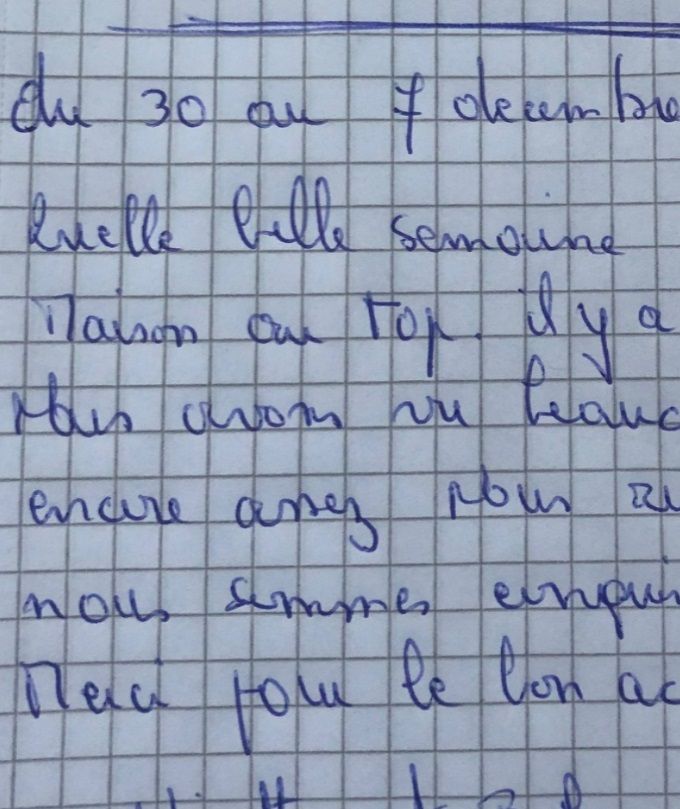 du 30 au 7 decembre
Quelle belle semaine
Maison au Top. il y a
Nous avons vu beauc
encore assez Nous
nous sommes
Merci pour le bon ac